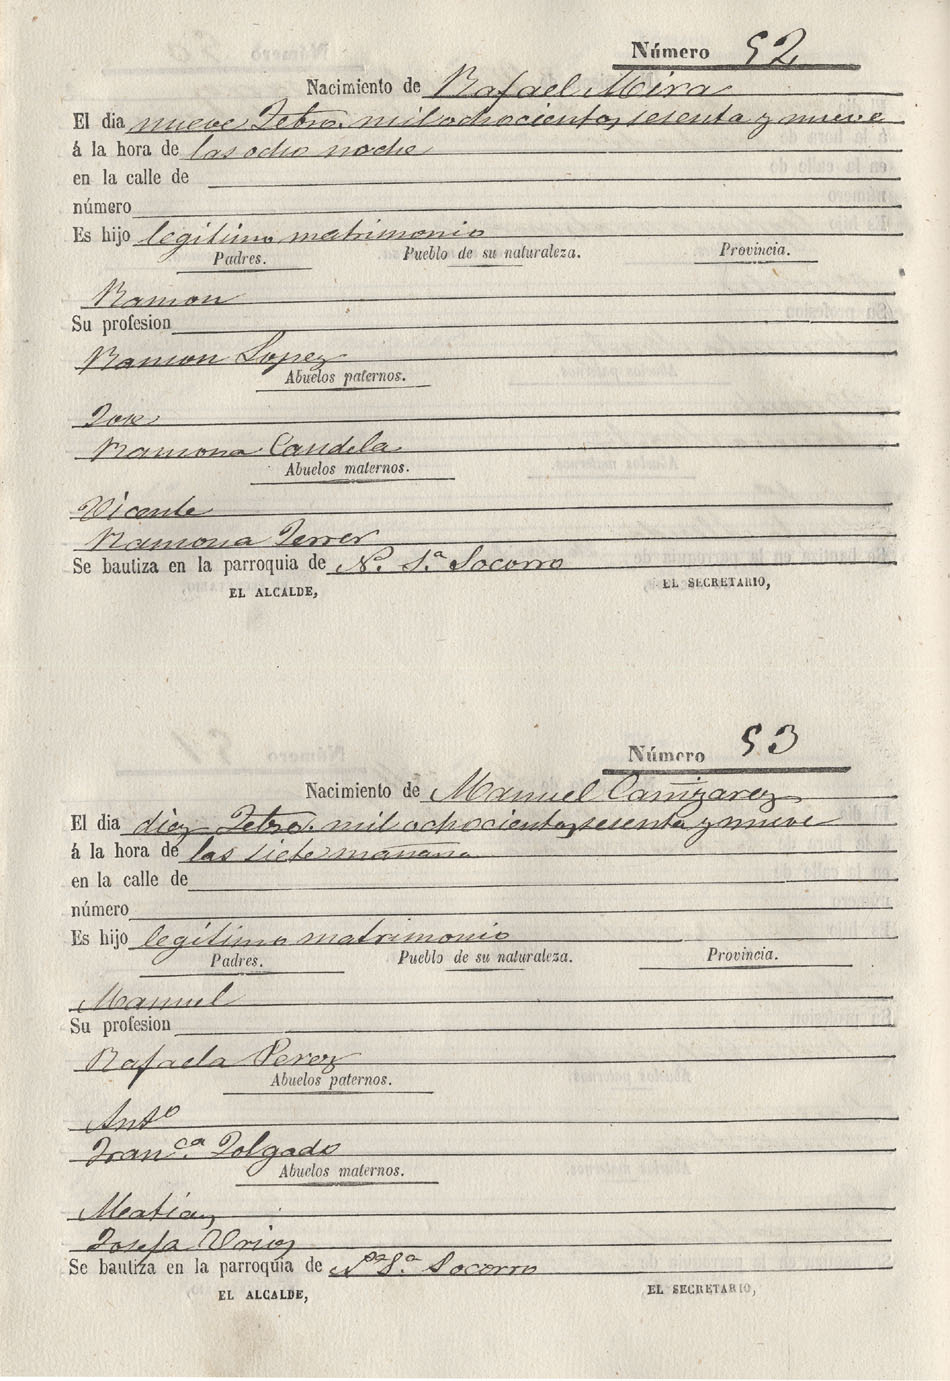 Número 52
Nacimiento de Rafael Mira
El dia nueve Febro. mil ochocientos sesenta y nueve
á la hora de las ocho noche
en la calle de
número
Es hijo legítimo matrimonio
Padres. Pueblo de su naturaleza. Provincia.
Ramon
Su profesion
Ramon Lopez
Abuelos paternos.
Jose
Ramona Candela
Abuelos maternos.
Vicente
Ramona Ferrer
Se bautiza en la parroquia de Na. Sa. Socorro
EL ALCALDE, EL SECRETARIO,
Número 53
Nacimiento de Manuel Cañizarez
El dia diez Febro. mil ochocientos sesenta y nueve
á la hora de las siete mañana
en la calle de
número
Es hijo legítimo matrimonio
Padres. Pueblo de su naturaleza. Provincia.
Manuel
Su profesion
Rafaela Perez
Abuelos paternos.
Anto
Franca. Folgado
Abuelos maternos.
Matias
Josefa Urios
Se bautiza en la parroquia de Na Sa. Socorro
EL ALCALDE, EL SECRETARIO,